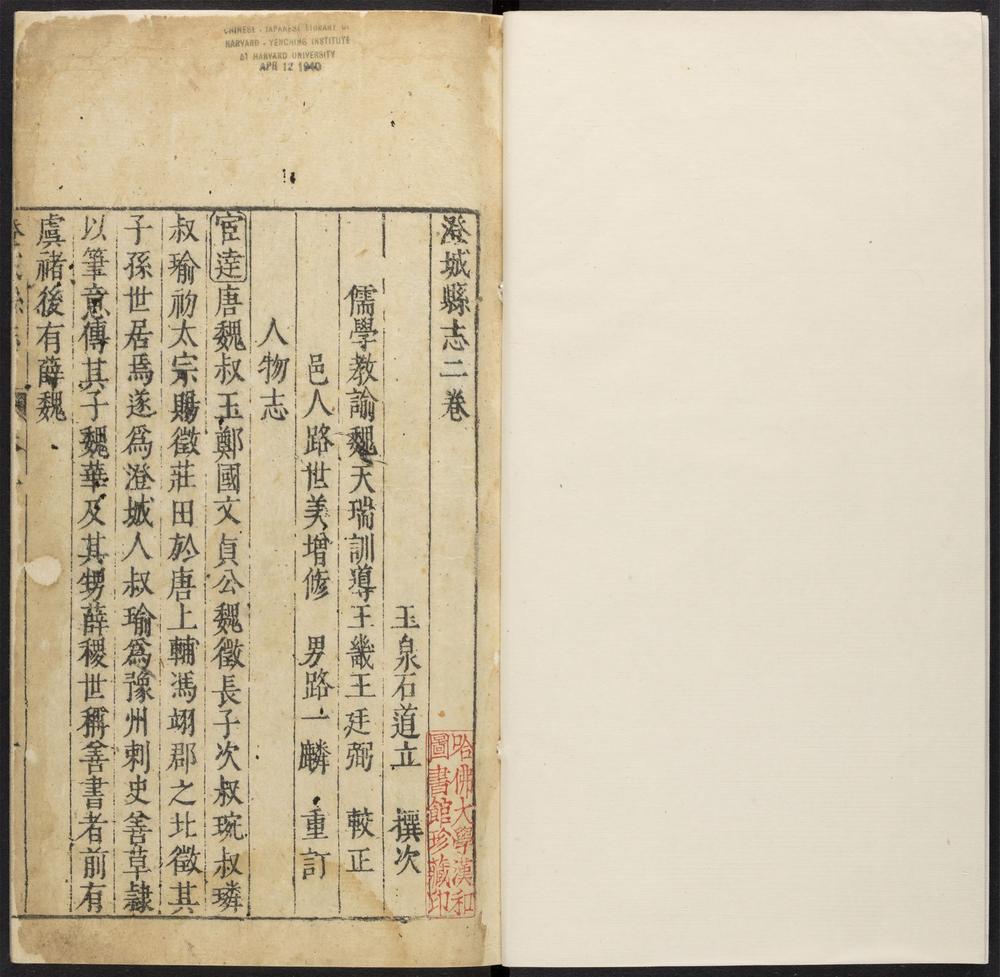 CHINESE - JAPANESE LIBRARY OF
HARVARD - YENCHING INSTITUTE
AT HARVARD UNIVERSITY
APR 12 1940
澄城縣志二卷
玉泉石道立　撰次
儒學教諭魏天瑞訓導王畿王廷弼　較正
邑人路世美增修　男路一麟　重訂
人物志
宦達唐魏叔玉鄭國文貞公魏徵長子次叔琬叔璘
叔瑜初太宗賜徵莊田於唐上輔馮翊郡之北徵其
子孫世居焉遂爲澄城人叔瑜爲豫州刺史善草隷
以筆意傳其子魏華及其甥薛稷世稱善書者前有
虞褚後有薛魏
哈佛大學漢和
圖書館珍藏印